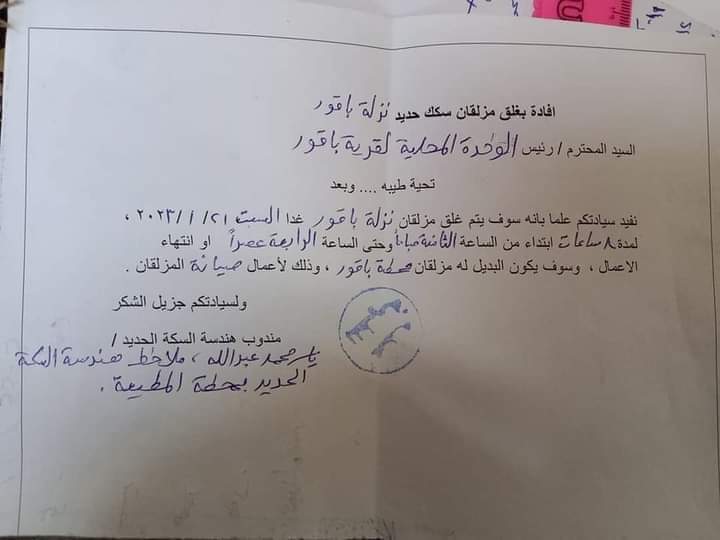 افادة بغلق مزلقان سكك حديد نزلة باقور
السيد المحترم / رئيس الوحدة المحلية لقرية باقور
تحية طيبه .... وبعد
نفيد سيادتكم علما بانه سوف يتم غلق مزلقان نزلة باقور غدا السبت ٢١ / ١ / ٢٠٢٣ ،
لمدة ٨ ساعات ابتداء من الساعة الثامنة صباحاً وحتى الساعة الرابعة عصراً او انتهاء
الاعمال ، وسوف يكون البديل له مزلقان محطة باقور ، وذلك لأعمال صيانة المزلقان .
ولسيادتكم جزيل الشكر
مندوب هندسة السكة الحديد /
ياسر محمد عبدالله ، ملاحظ هندسة السكة
الحديد بمحطة المطيعة .